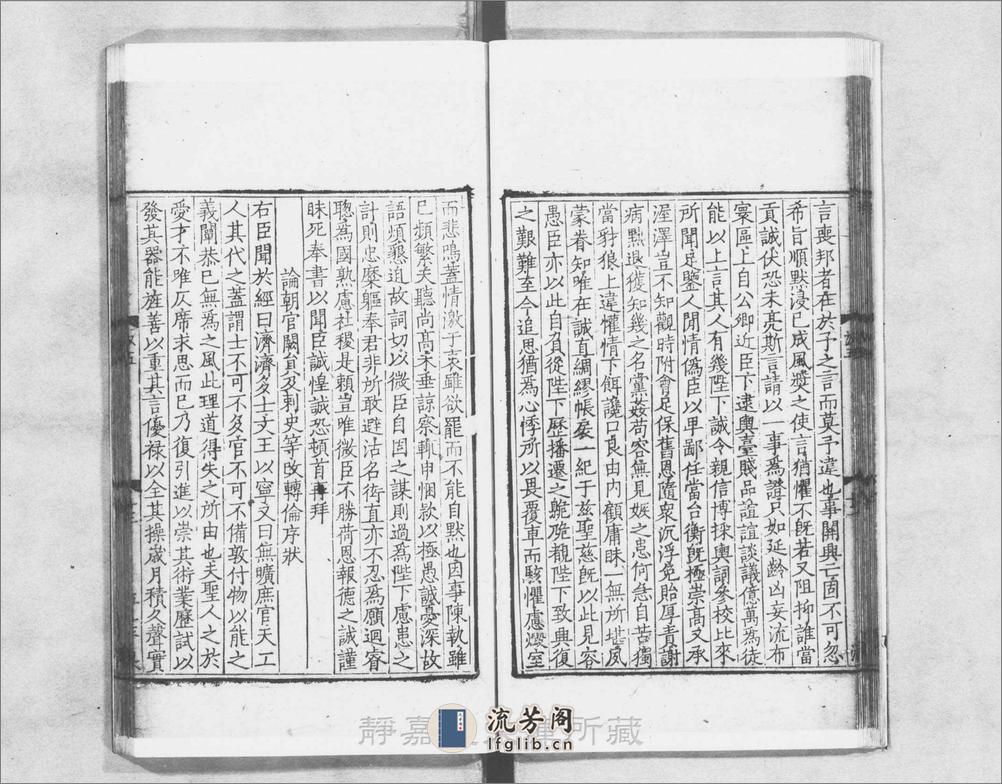 言喪邦者在於予之言而莫予違也事關興亡固不可忽
希旨順默浸已成風奬之使言猶懼不旣若又阻抑誰當
貢誠伏恐未亮斯言請以一事為證只如延齡凶妄流布
寰區上自公卿近臣下逮輿臺賤品諠諠談議億萬為徒
能以上言其人有幾陛下誠令親信博採輿詞叅校比來
所聞足鑒人間情偽臣以卑鄙任當台衡旣極崇高又承
渥澤豈不知觀時附會足保舊恩隨衆沉浮免貽厚責謝
病黙退獲知幾之名黨姦苟容無見嫉之患何急自苦獨
當豺狼上違懽情下餌讒口良由內顧庸昧一無所堪夙
蒙眷知唯在誠直綢繆帳扆一紀于茲聖慈旣以此見容
愚臣亦以此自負從陛下歷播遷之艱危覩陛下致興復
之艱難至今追思猶為心悸所以畏覆車而駭懼慮燬室
而悲鳴蓋情激于衷雖欲罷而不能自默也因事陳執雖
已頻繁天聽尚高未垂諒察輒申悃款以極愚誠憂深故
語煩懇迫故詞切以微臣自固之謀則過為陛下慮患之
計則忠糜軀奉君非所敢避沽名衒直亦不忍為願迴睿
聰為國熟慮社稷是賴豈唯微臣不勝荷恩報德之誠謹
昧死奉書以聞臣誠惶誠恐頓首再拜
論朝官闕員及刺史等改轉倫序狀
右臣聞於經曰濟濟多士文王以寧又曰無曠庶官天工
人其代之蓋謂士不可不多官不可不備敦付物以能之
義闡恭己無為之風此理道得失之所由也夫聖人之於
愛才不唯仄席求思而已乃復引進以崇其術業歷試以
發其器能旌善以重其言優祿以全其操歲月積久聲實
靜嘉
所藏
流芳阁
lfglib.cn